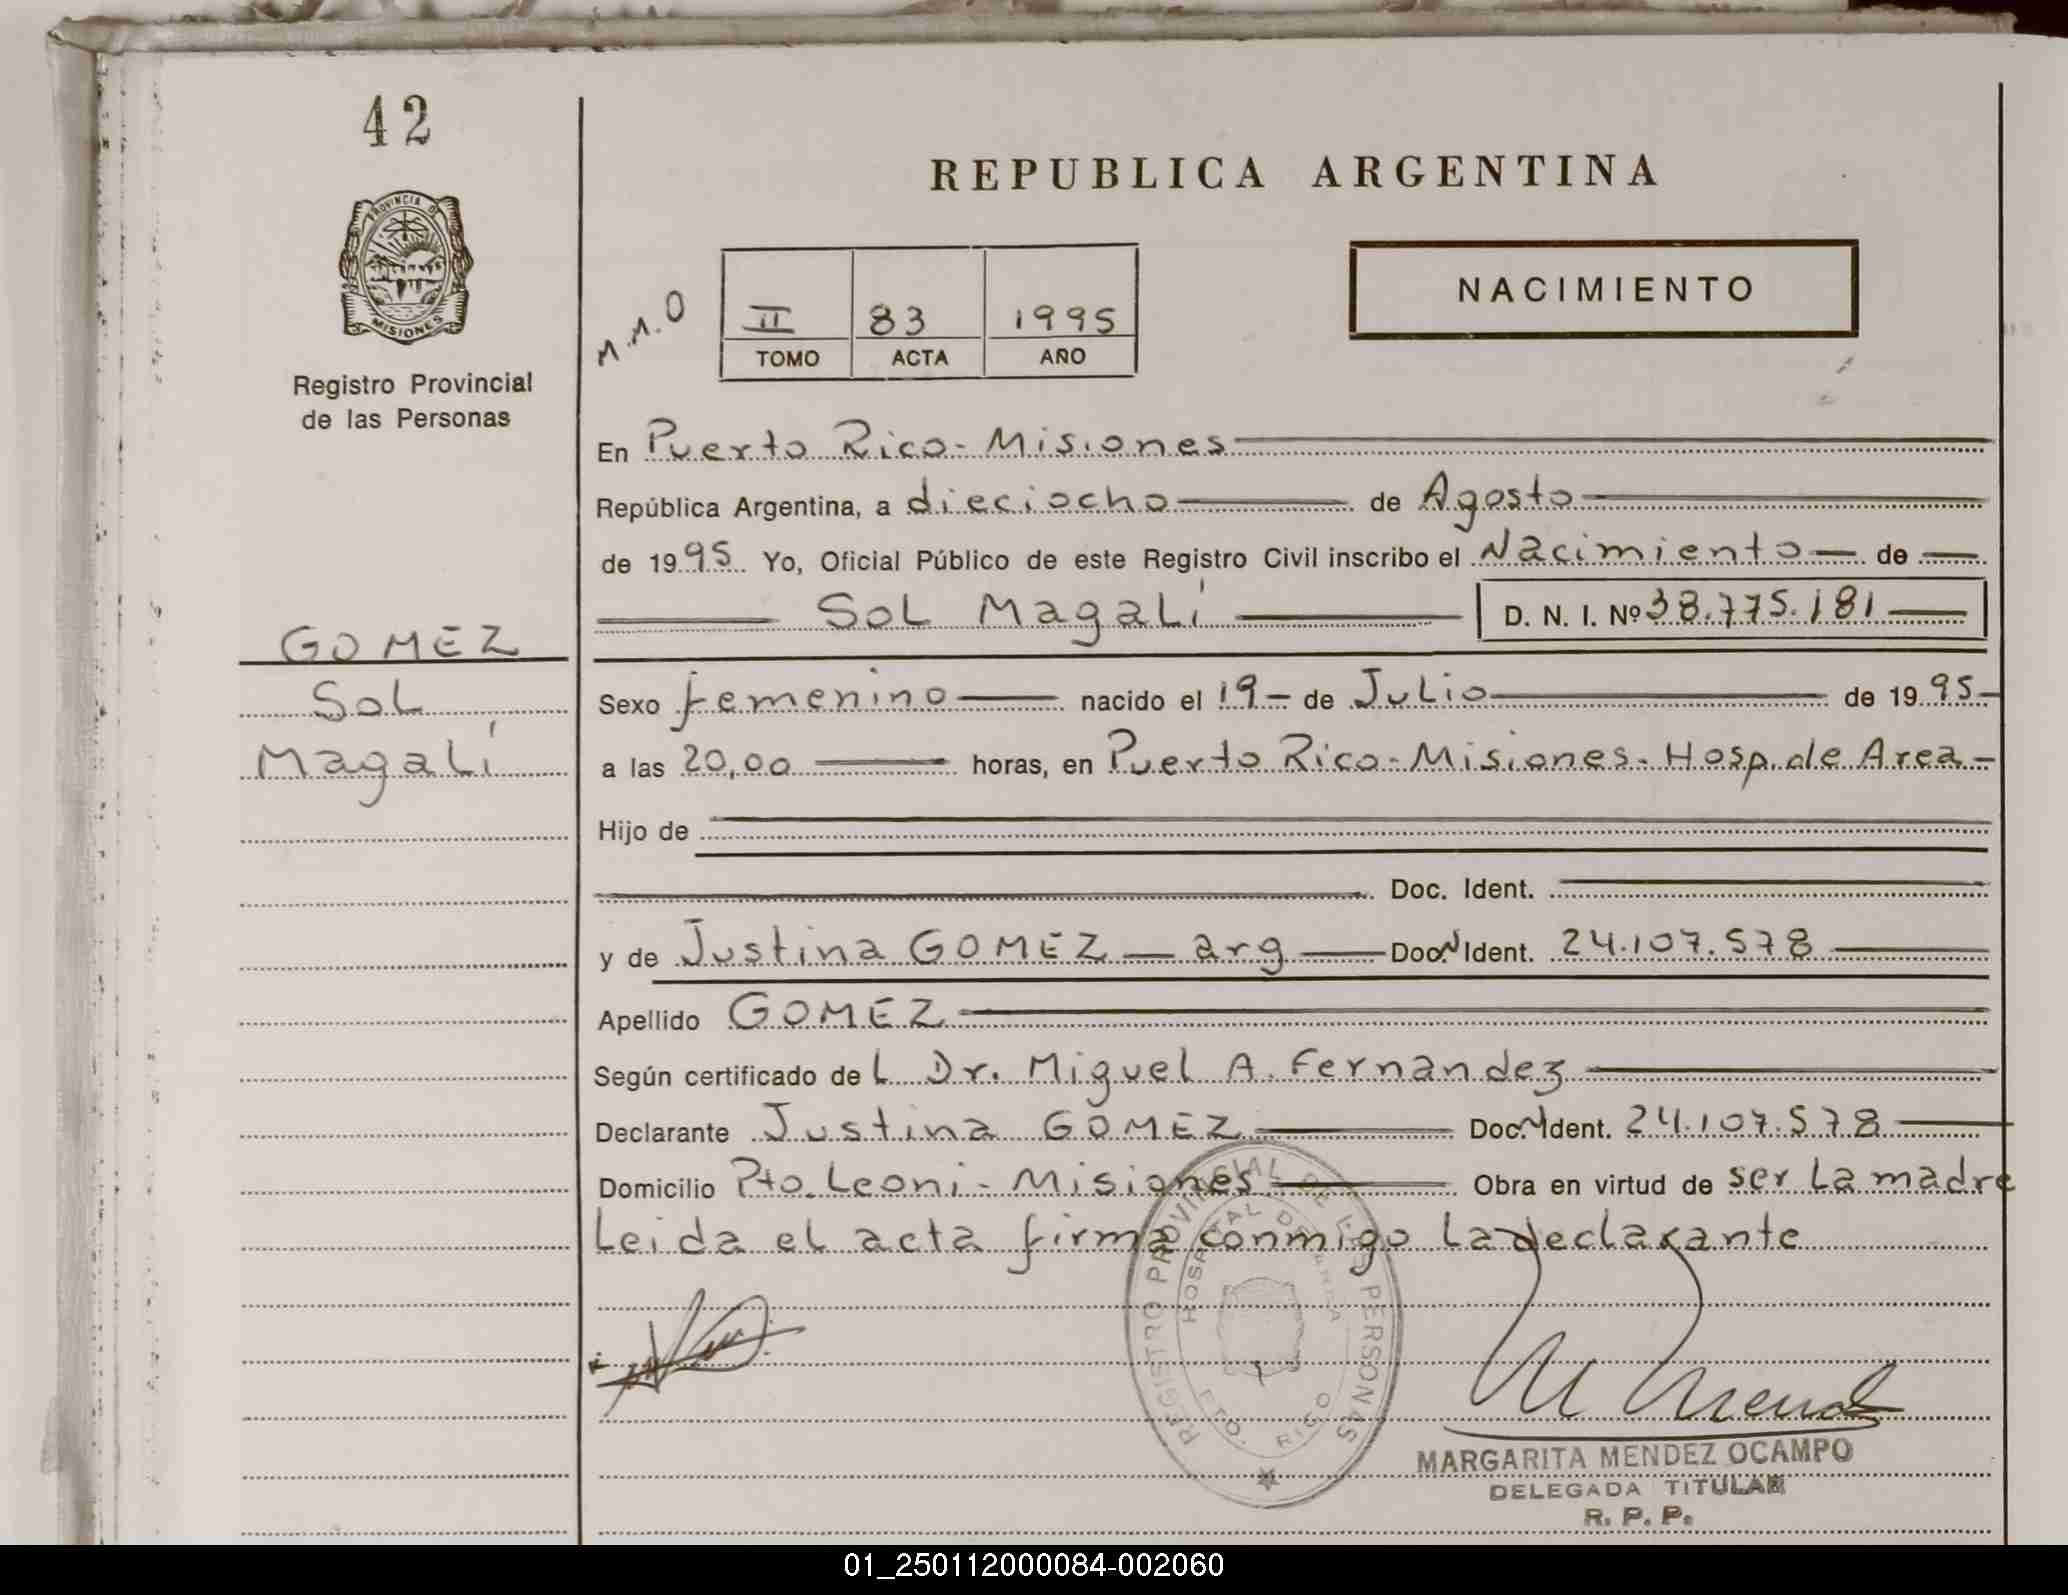 42
PROVINCIA DE
MISIONES
Registro Provincial
de las Personas
GOMEZ
Sol
Magalí
REPUBLICA ARGENTINA
M.M.O
II 83 1995
TOMO ACTA AÑO
NACIMIENTO
En Puerto Rico - Misiones
República Argentina, a dieciocho de Agosto
de 1995 Yo, Oficial Público de este Registro Civil inscribo el Nacimiento de
Sol Magalí D. N. I. Nº 38.775.181
Sexo femenino nacido el 19 de Julio de 1995
a las 20,00 horas, en Puerto Rico - Misiones - Hosp. de Area
Hijo de
Doc. Ident.
y de Justina GOMEZ - arg Doc. N Ident. 24.107.578
Apellido GOMEZ
Según certificado del Dr. Miguel A. Fernandez
Declarante Justina GOMEZ Doc. N Ident. 24.107.578
Domicilio Pto. Leoni - Misiones Obra en virtud de ser la madre
Leida el acta firma conmigo la declarante
REGISTRO PROVINCIAL DE LAS PERSONAS
HOSPITAL DE AREA
PTO. RICO
MARGARITA MENDEZ OCAMPO
DELEGADA TITULAR
R. P. P.
01_250112000084-002060